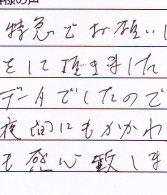 様の声
特急でお願いし
をして頂きました
データでしたので
夜間にもかかわ
も感心致しま